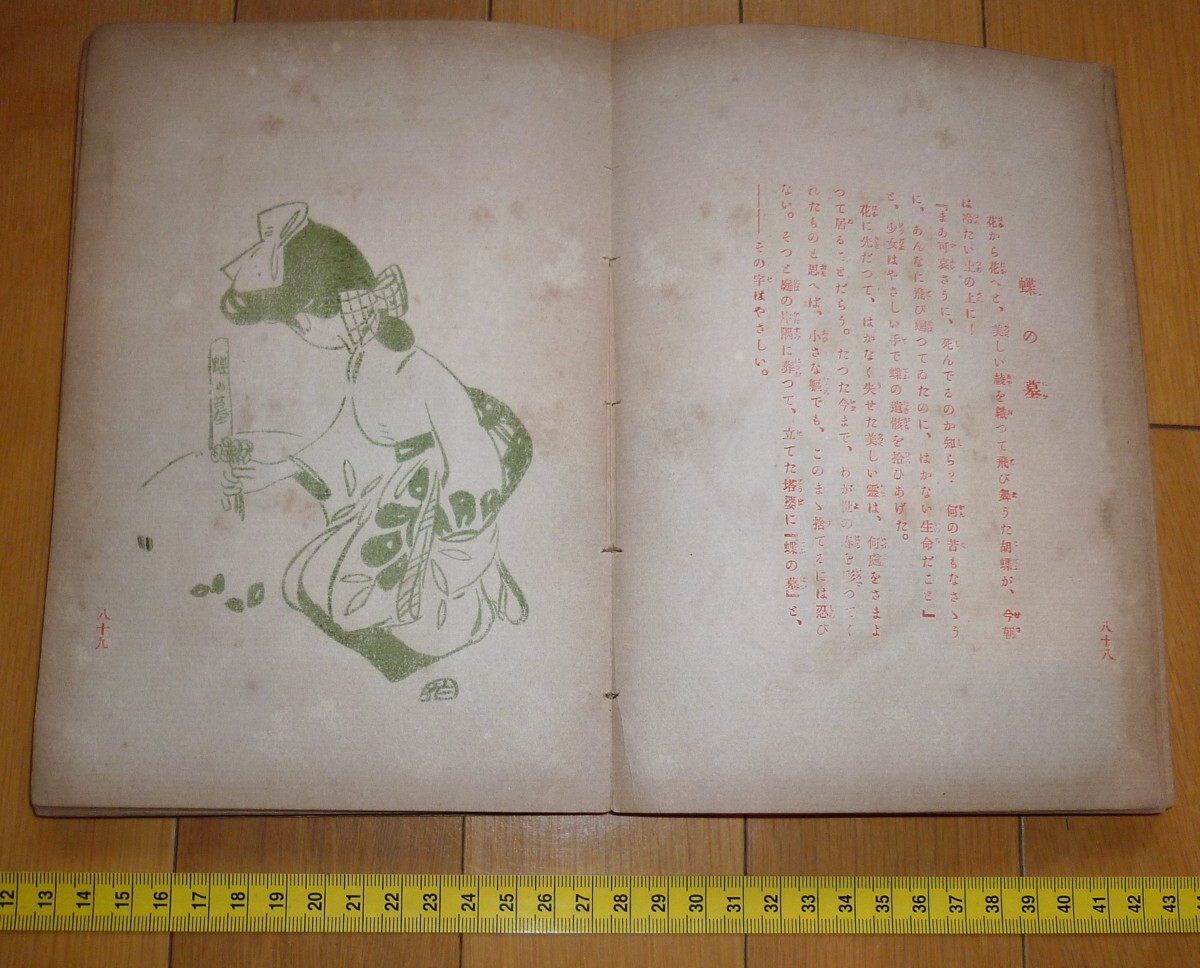 蝶の墓
花から花へと、美しい綾を織つて飛び舞うた胡蝶が、今朝
は冷たい土の上に！
『まあ可哀さうに、死んでるのか知ら？　何の苦もなさゝう
に、あんなに飛び廻つてゐたのに、はかない生命だこと』
と、少女はやさしい手で蝶の遺骸を拾ひあげた。
花に先だつて、はかなく失せた美しい霊は、何處をさまよ
つて居ることだらう。たつた今まで、わが世の春を
れたものと思へば、小さな軀でも、このまゝ捨てるには忍び
ない。そつと庭の片隅に葬つて、立てた塔婆に『蝶の墓』と、
――その字はやさしい。
八十八
蝶の墓
八十九